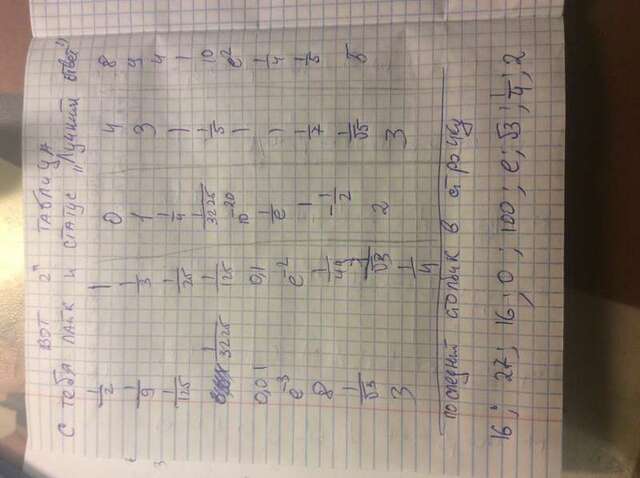 ВОТ 2ª ТАБЛИЦА
С тебя лайк и статус „Лучший ответ"
1/2 1 0 4 8
1/9 1/3 1 3 9
1/125 1/25 1/4 1 4
1/3225 1/125 1/3225 1/5 1
0,01 0,1 10^-20 1 10
e^-3 e^-2 1/e 1 e^2
8 1/49 1 1/7 1/4
1/√3 1/√3 -1/2 1/√5 1/5
3 1/4 2 3 5
последний столбик в строчку
16; 27; 16; 0; 100; e; √3; 1/4; 2